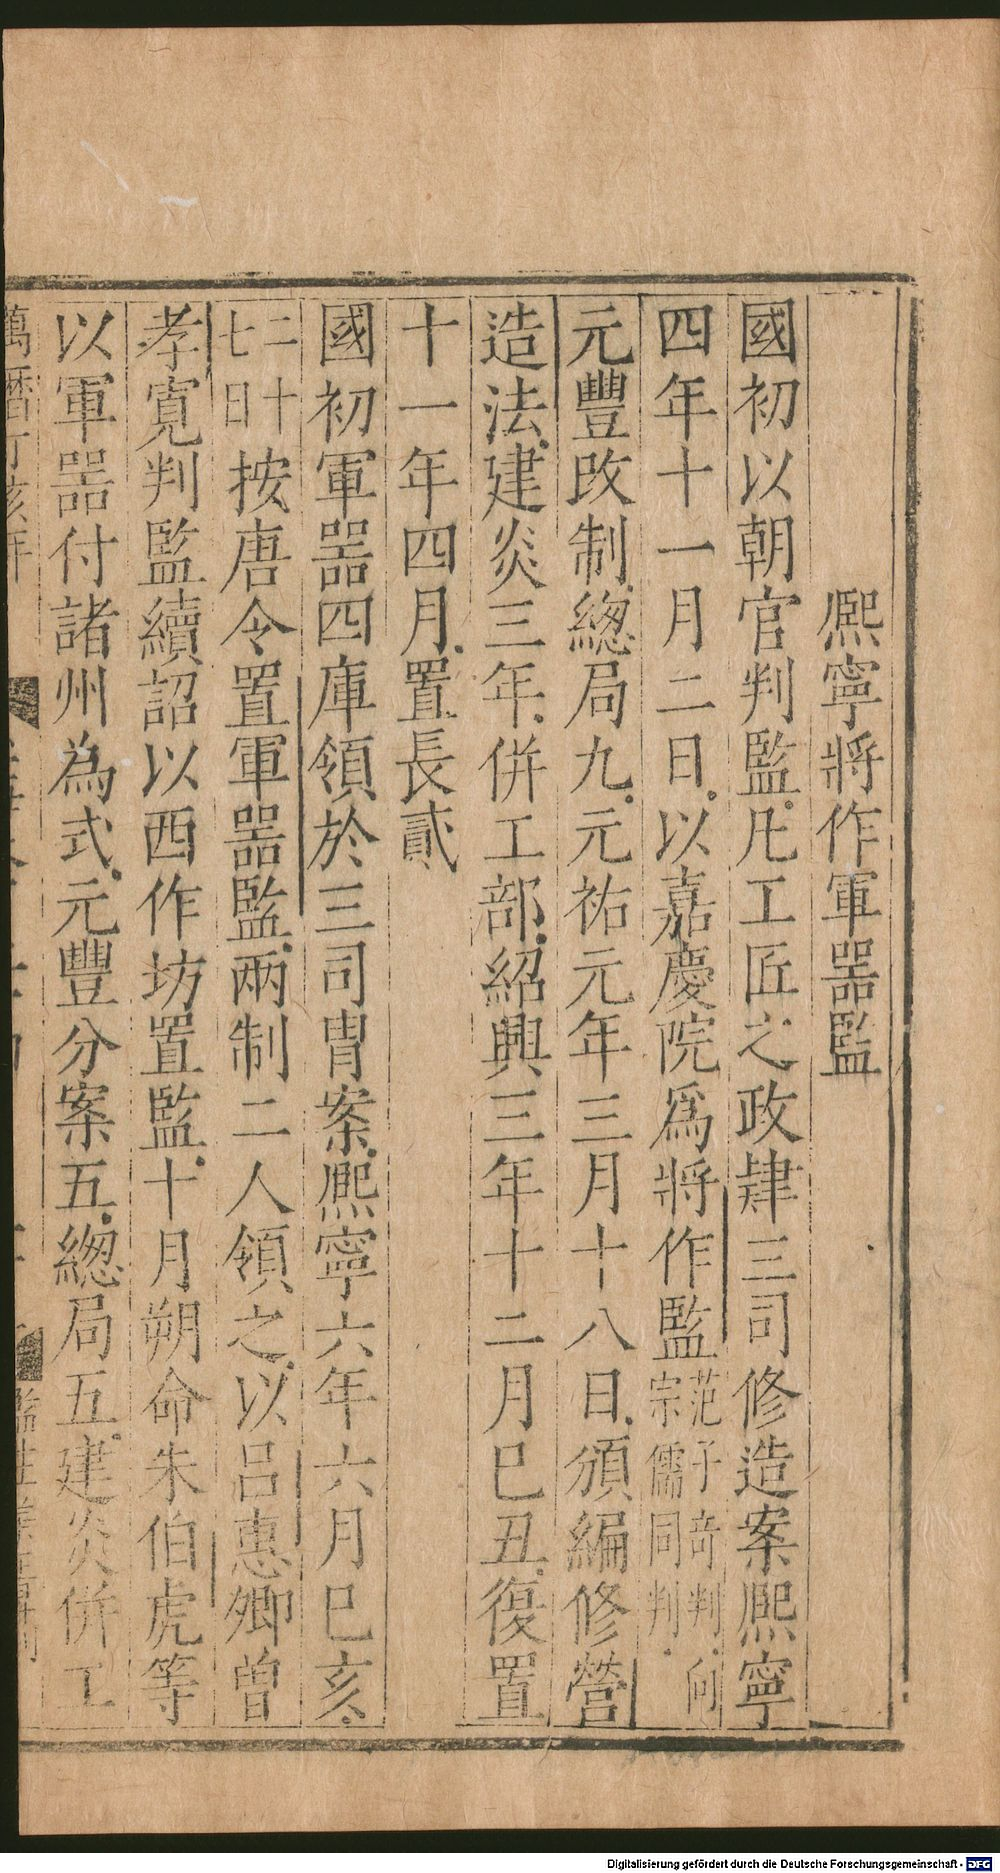 熈寧將作軍器監
國初以朝官判監凡工匠之政肆三司修造案熈寧
四年十一月二日以嘉慶院爲將作監范子竒判向宗儒同判
元豐改制總局九元祐元年三月十八日頒編修營
造法建炎三年併工部紹興三年十二月巳丑復置
十一年四月置長貳
國初軍器四庫領於三司冑案熈寧六年六月巳亥
二十七日按唐令置軍器監兩制二人領之以呂惠卿曽
孝寛判監續詔以西作坊置監十月朔命朱伯虎等
以軍器付諸州為式元豐分案五總局五建炎併工
萬曆丁亥年
監生
Digitalisierung gefördert durch die Deutsche Forschungsgemeinschaft - DFG